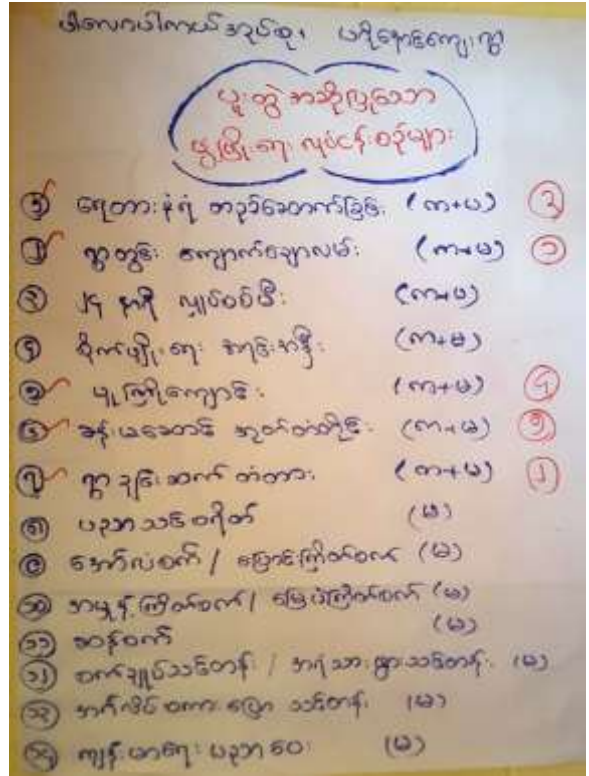 ပူးတွဲ အဆိုပြုသော
ဖွံ့ဖြိုးရေး လုပ်ငန်းစဉ်များ
ရေတားနံရံ တည်ဆောက်ခြင်း (က+မ) ၃
၁ ရွာတွင်း ကျောက်ချောလမ်း (က+မ) ၁
၃ ၂၄ နာရီ လျှပ်စစ်မီး (က+မ)
၄ စိုက်ပျိုးရေး (က+မ)
မူကြိုကျောင်း (က+မ) ၄
၆ ခန်းမဆောင် အုတ်တံတိုင်း (က+မ) ၅
၇ ရွာချင်းဆက် တံတား (က+မ) ၂
၈ ပညာသင်စရိတ် (မ)
၉ အော်လံစက် / ပြောင်းကြိတ်စက် (မ)
၁၀ အမှုန့်ကြိတ်စက် / မြေပဲကြိတ်စက် (မ)
၁၁ ဆန်စက် (မ)
၁၂ စက်ချုပ်သင်တန်း / သင်တန်း (မ)
၁၃ အင်္ဂလိပ်စကားပြော သင်တန်း (မ)
၁၄ ကျန်းမာရေး ပညာပေး (မ)